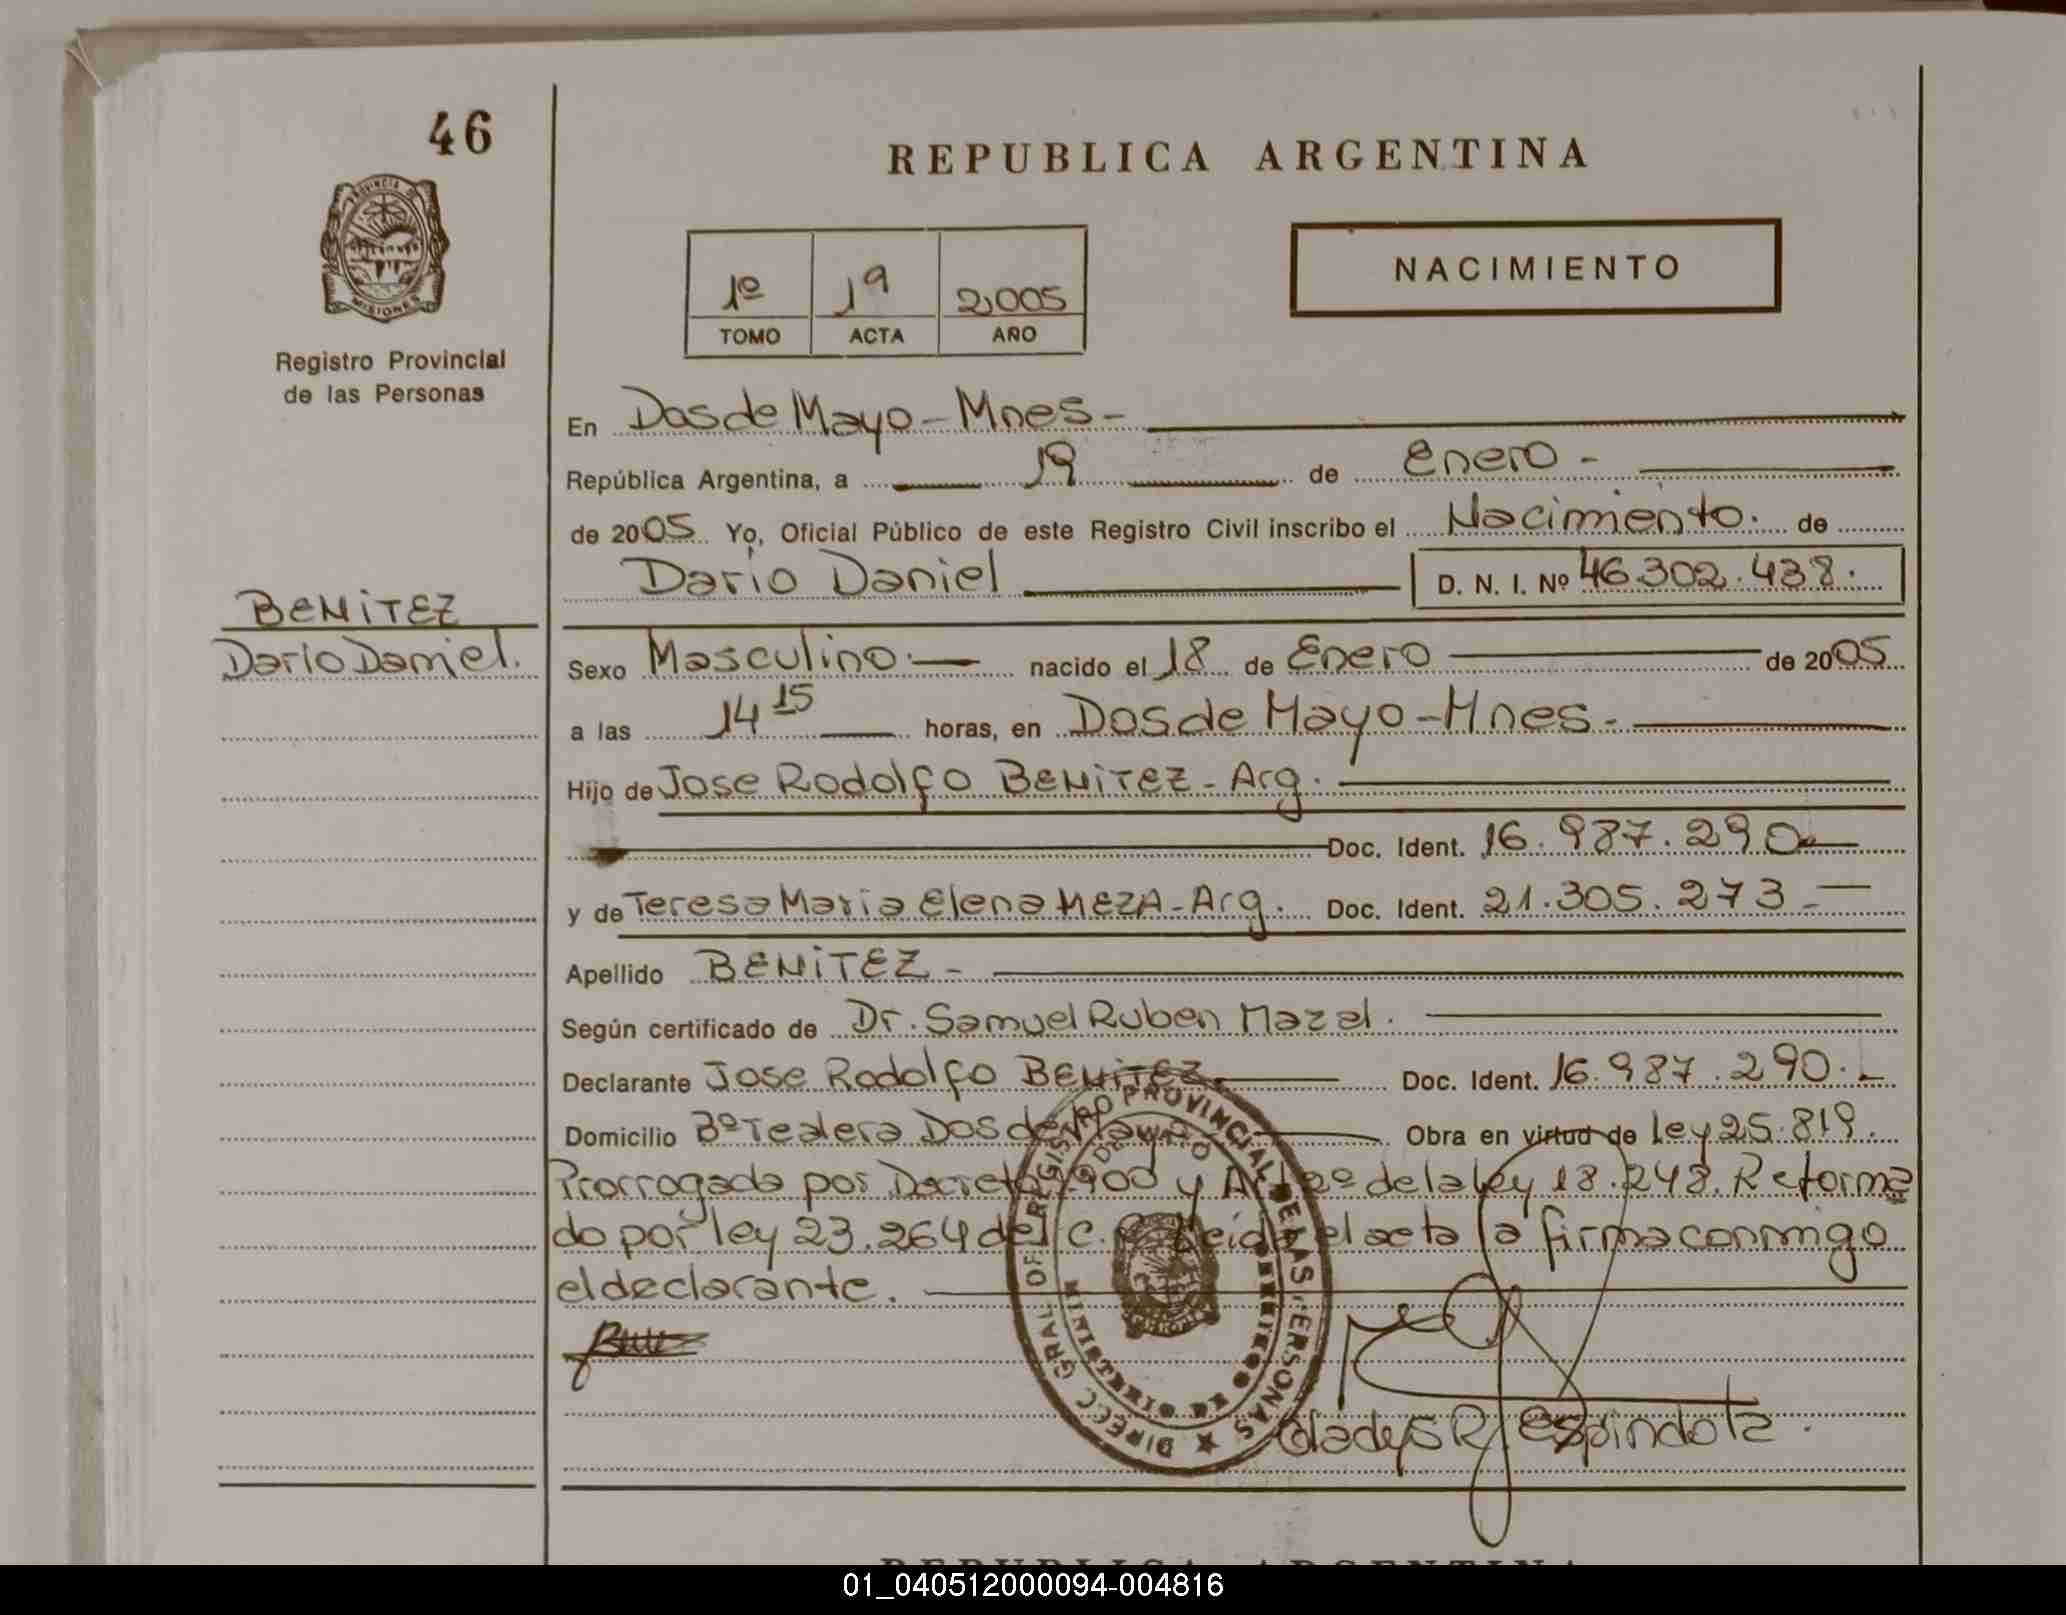 46
REPUBLICA ARGENTINA
NACIMIENTO
1º 19 2,005
TOMO ACTA AÑO
PROVINCIA DE MISIONES
Registro Provincial
de las Personas
En Dos de Mayo - Mnes -
República Argentina, a 19 de Enero -
de 2005 Yo, Oficial Público de este Registro Civil inscribo el Nacimiento. de
Dario Daniel D. N. I. Nº 46.302.438.
BENITEZ
Dario Daniel.
Sexo Masculino. nacido el 18 de Enero de 2005
a las 14 15 horas, en Dos de Mayo - Mnes -
Hijo de Jose Rodolfo BENITEZ - Arg.
Doc. Ident. 16.987.290
y de Teresa Maria Elena MEZA - Arg. Doc. Ident. 21.305.273 -
Apellido BENITEZ -
Según certificado de Dr. Samuel Ruben Mazal.
Declarante Jose Rodolfo BENITEZ Doc. Ident. 16.987.290. -
Domicilio Bº Tealera Dos de Mayo Obra en virtud de ley 25.819.
Prorrogada por Decreto y Art 2º de la ley 18.248. Reforma
do por ley 23.264 del C. Leida el acta la firma conmigo
el declarante.
DIRECC GRAL DEL REGISTRO PROVINCIAL DE LAS PERSONAS
Gladys R. Espindola.
REPUBLICA ARGENTINA
01_040512000094-004816